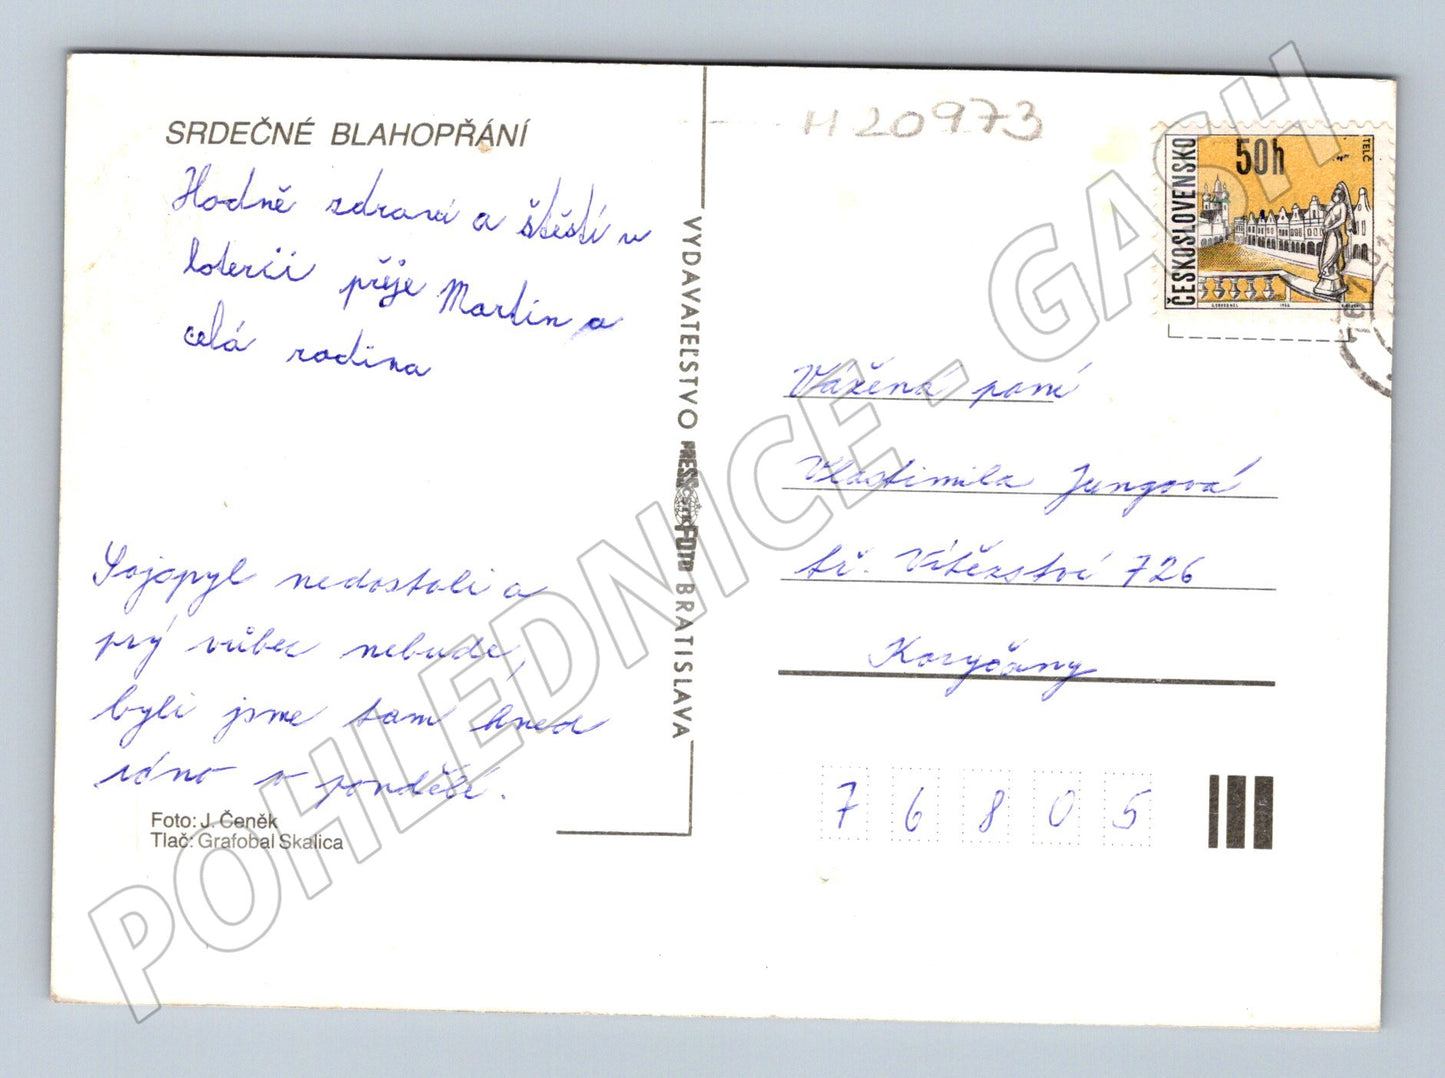 SRDEČNÉ BLAHOPŘÁNÍ
Hodně zdraví a štěstí v
loterii přeje Martin a
celá rodina
Sojopyl nedostali a
prý vůbec nebude,
byli jsme tam hned
ráno v pondělí.
Foto: J. Čeněk
Tlač: Grafobal Skalica
VYDAVATEĽSTVO PRESSFOTO BRATISLAVA
H20973
ČESKOSLOVENSKO
50h
TELČ
Vážená paní
Vlastimila Jungová
tř. Vítězství 726
Koryčany
76805
POHLEDNICE - GASH